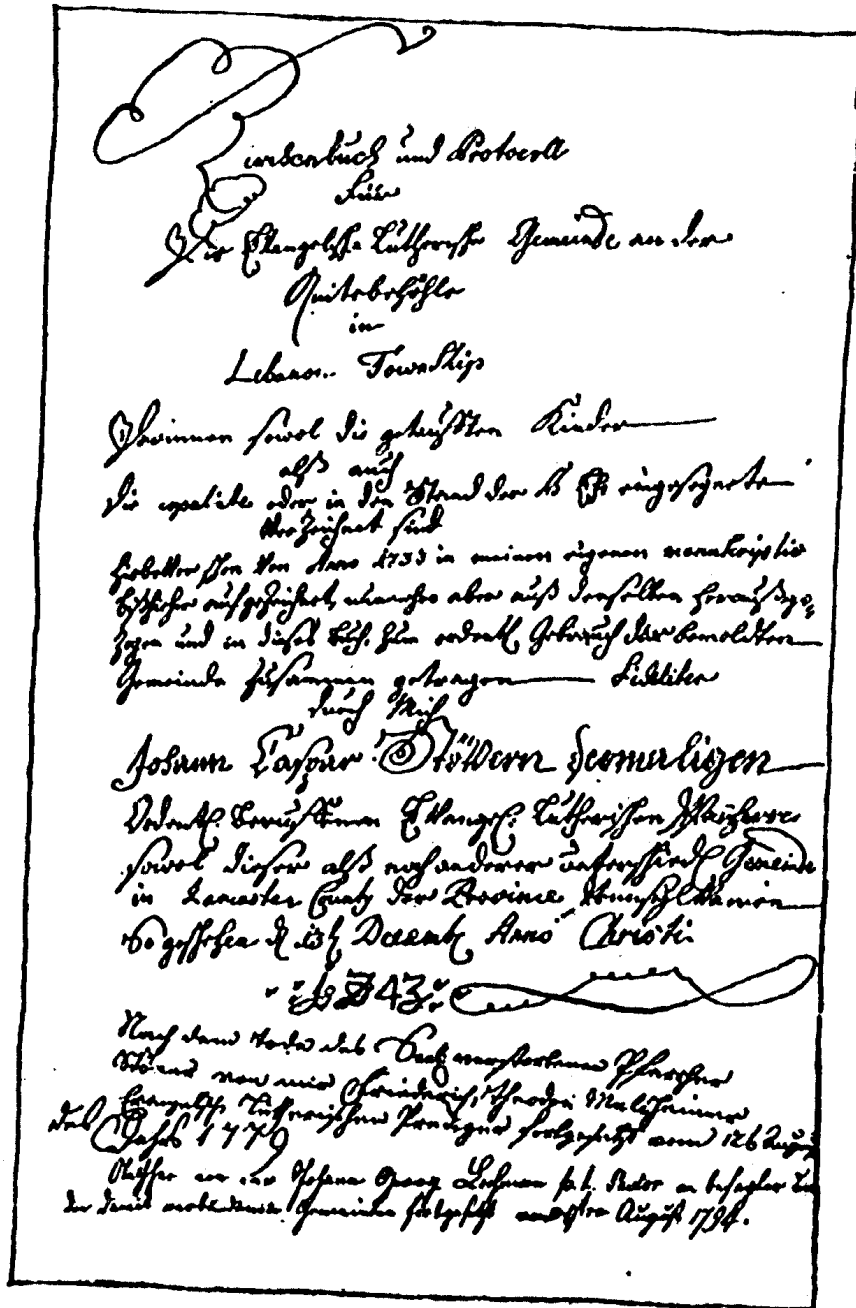 Kirchenbuch und Protocoll
Für
Die Evangelische Lutherische Gemeinde an der
Quitebehöhle
in
Lebanon Township
Worinnen sowol die getaufften Kinder
alß auch
die copulirte oder in den Stand der H. Ehe eingesegnete
Verzeichnet sind
schon von Anno 1733 in meinem eigenen manuscriptis
bißhieher aufgezeichnet, nunmehro aber auß denselben heraußge-
zogen und in dieses Buch, zum ordentl. Gebrauch der bemeldten
Gemeinde zusammen getragen Fideliter
durch Mich
Johann Caspar Stövern dermaligen
Ordentl. Beruffenen Evangel. Lutherischen Pfarherr
sowol dieser alß noch anderer unterschiedl. Gemeinde
in Lancaster County der Province Pennsylvanien
So geschehen d. 13t Decembr Anno Christi
1743
Nach dem tode des Seel. verstorbenen Pfarrher
Stövers von mir Friederich Theodor Melsheimer
Evangelisch Lutherischen Prediger fortgesetzt vom 12 August
des Jahrs 1779
Johann Georg Lochman p. t. Pastor
Gemeinden fortgesetzt August 1794.